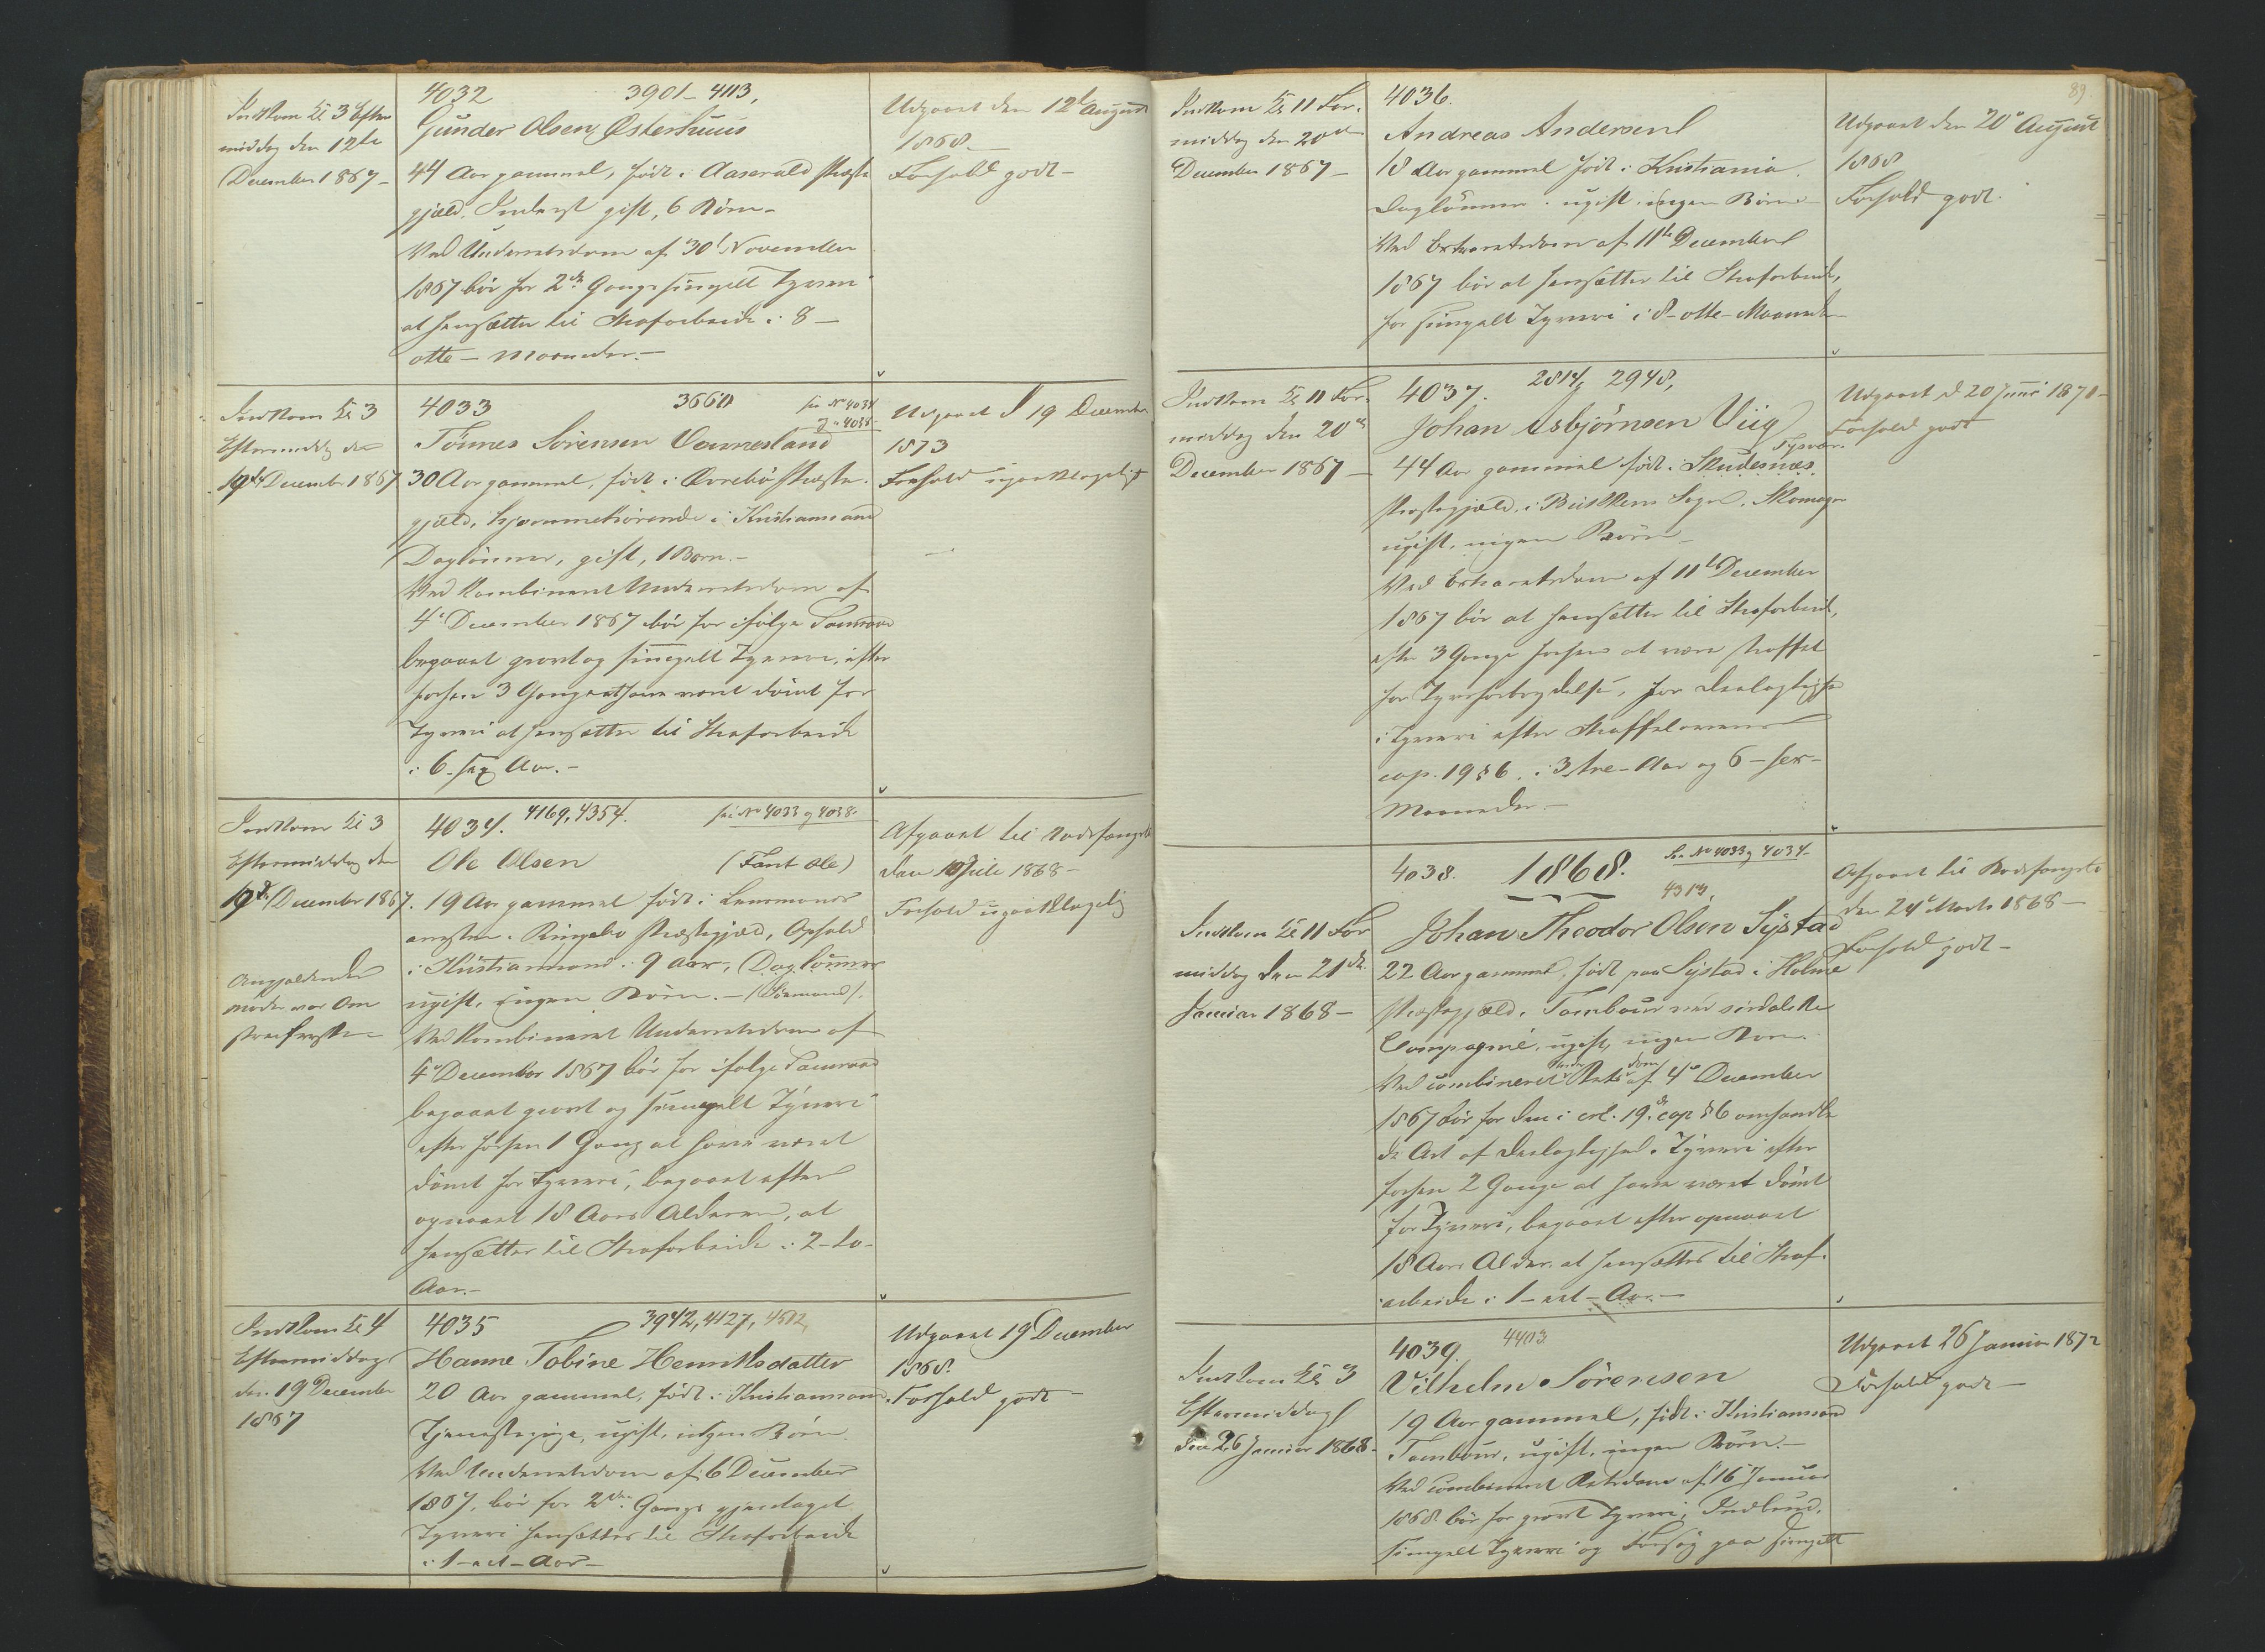 Indkom Kl 3 Efter
middag den 12te
December 1867 –
4032 3901 – 4113,
Gunder Olsen Østerhuus
44 Aar gammel, født i Aaserald Præste
gjæld, Inderst gift, 6 Børn –
Ved Underretsdom af 30t November
1867 bør for 2den Gang simpelt Tyveri
at hensættes til Strafarbeide i 8 –
otte – Maaneder. –
Udgaaet den 12t August
1868. –
Forhold godt –
Indkom Kl 3
Eftermiddag den
19de December 1867
4033 3660 see No 4034
og 4038
Tönnes Sörensen Vennesland
30 Aar gammel, født i Øvrebø Præste-
gjæld, hjemmehörende i Kristianssand
Daglønner, gift, 1 Barn. –
Ved Kombineret Underretsdom af
4de December 1867 bør for ifølge Samraad
begaaet grovt og simpelt Tyveri, efter
forhen 3 Gange at have været dömt for
Tyveri at hensættes til Strafarbeide
i 6 – sex Aar. –
Udgaaet d 19 December
1873
Forhold upaaklageligt
Indkom Kl 3
Eftermiddag den
19de December 1867.
Angjældendes
moder var Om
streiferske
4034. 4169, 4354. see No 4033 og 4038
Ole Olsen (Fant Ole)
19 Aar gammel født i Lensmands
arresten i Ringebo Præstegjæld, Ophold
i Kristianssand i 9 Aar, Daglønner
ugift, ingen Børn. – (Sømand).
Ved Kombineret Underretsdom af
4de December 1867 bør for ifølge Samraad
begaaet grovt og simpelt Tyveri
efter forhen 1 Gang at have været
dömt for Tyveri, begaaet efter
opnaaet 18 Aars Alderen, at
hensættes til Strafarbeide i 2 – to –
Aar. –
Afgaaet til Bodsfængslet
den Juli 1868 –
Forhold upaaklagelig
Indkom Kl 4
Eftermiddag
den 19 December
1867
4035 3942, 4127, 4512
Hanne Tobine Henriksdatter
20 Aar gammel, født i Kristianssand
Tjenestepige, ugift, ingen Børn.
Ved Underretsdom af 6 December
1867, bør for 2den Gangs gjentaget
Tyveri hensættes til Strafarbeide
i 1 – eet – Aar –
Udgaaet 19 December
1868.
Forhold godt
89.
Indkom Kl 11 For-
middag den 20de
December 1867 –
4036.
Andreas Andersen
18 Aar gammel født i Kristiania.
Daglönner. ugift. ingen Børn –
Ved Extraretsdom af 11te December
1867 bør at hensættes til Strafarbeide,
for simpelt Tyveri i 8 – otte – Maaneder
Udgaaet den 20de August
1868
Forhold godt.
Indkom Kl 11 For-
middag den 20de
December 1867 –
4037. 2814, 2948,
Johan Asbjørnsen Viig
Tysvær.
44 Aar gammel født i Skudesnæs
Præstegjæld, i Buskken Sogn. Skomager
ugift, ingen Børn –
Ved Extraretsdom af 11t December
1867 bør at hensættes til Strafarbeide,
efter 3 Gange forhen at være straffet
for Tyvsforbrydelse, for Deelagtighed
i Tyveri efter Straffelovens
cap. 19 § 6. i 3 tre – Aar og 6 – sex –
Maaneder –
Udgaaet d 20 Juni 1871 –
Forhold godt
Indkom Kl 11 For
middag den 21de
Januar 1868 –
4038. 1868. See No 4033 og 4034 –
4313,
Johan Theodor Olsen Systad
22 Aar gammel, født paa Systad i Holme
Præstegjæld, Tambour ved sirdalske
Compagnie, ugift, ingen Børn.
Ved combineret Under Rets dom af 4de December
1867 bør for den i crl. 19de cap § 6 omhandle
de Art af Deelagtighed i Tyveri efter
forhen 2 Gange at have været dömt
for Tyveri, begaaet efter opnaaet
18 Aars Alder at hensættes til Straf-
arbeide i 1 – eet – Aar. –
Afgaaet til Bodsfængslet
den 24de Marts 1868 –
Forhold godt –
Indkom Kl 3
Eftermiddag
den 26 Januar 1868 –
4039. 4403
Vilhelm Sörensen
19 Aar gammel, født i Kristianssand
Tambour, ugift, ingen Börn. –
Ved combineret Retsdom af 16 Januar
1868 bør for grovt Tyveri, Indbrud,
simpelt Tyveri og Forsøg paa simpelt
Udgaaet 26 Januar 1872
Forhold godt –